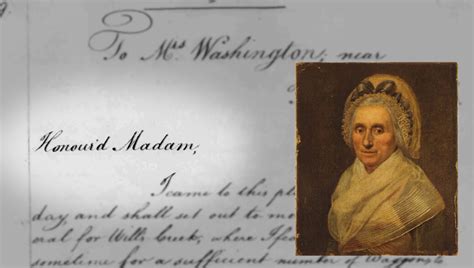 To Mrs. Washington, near
Honour'd Madam,
I came to this pl
day, and shall set out to mo
ral for Wills Creek, where I fea
sometime for a sufficient number of Waggons to